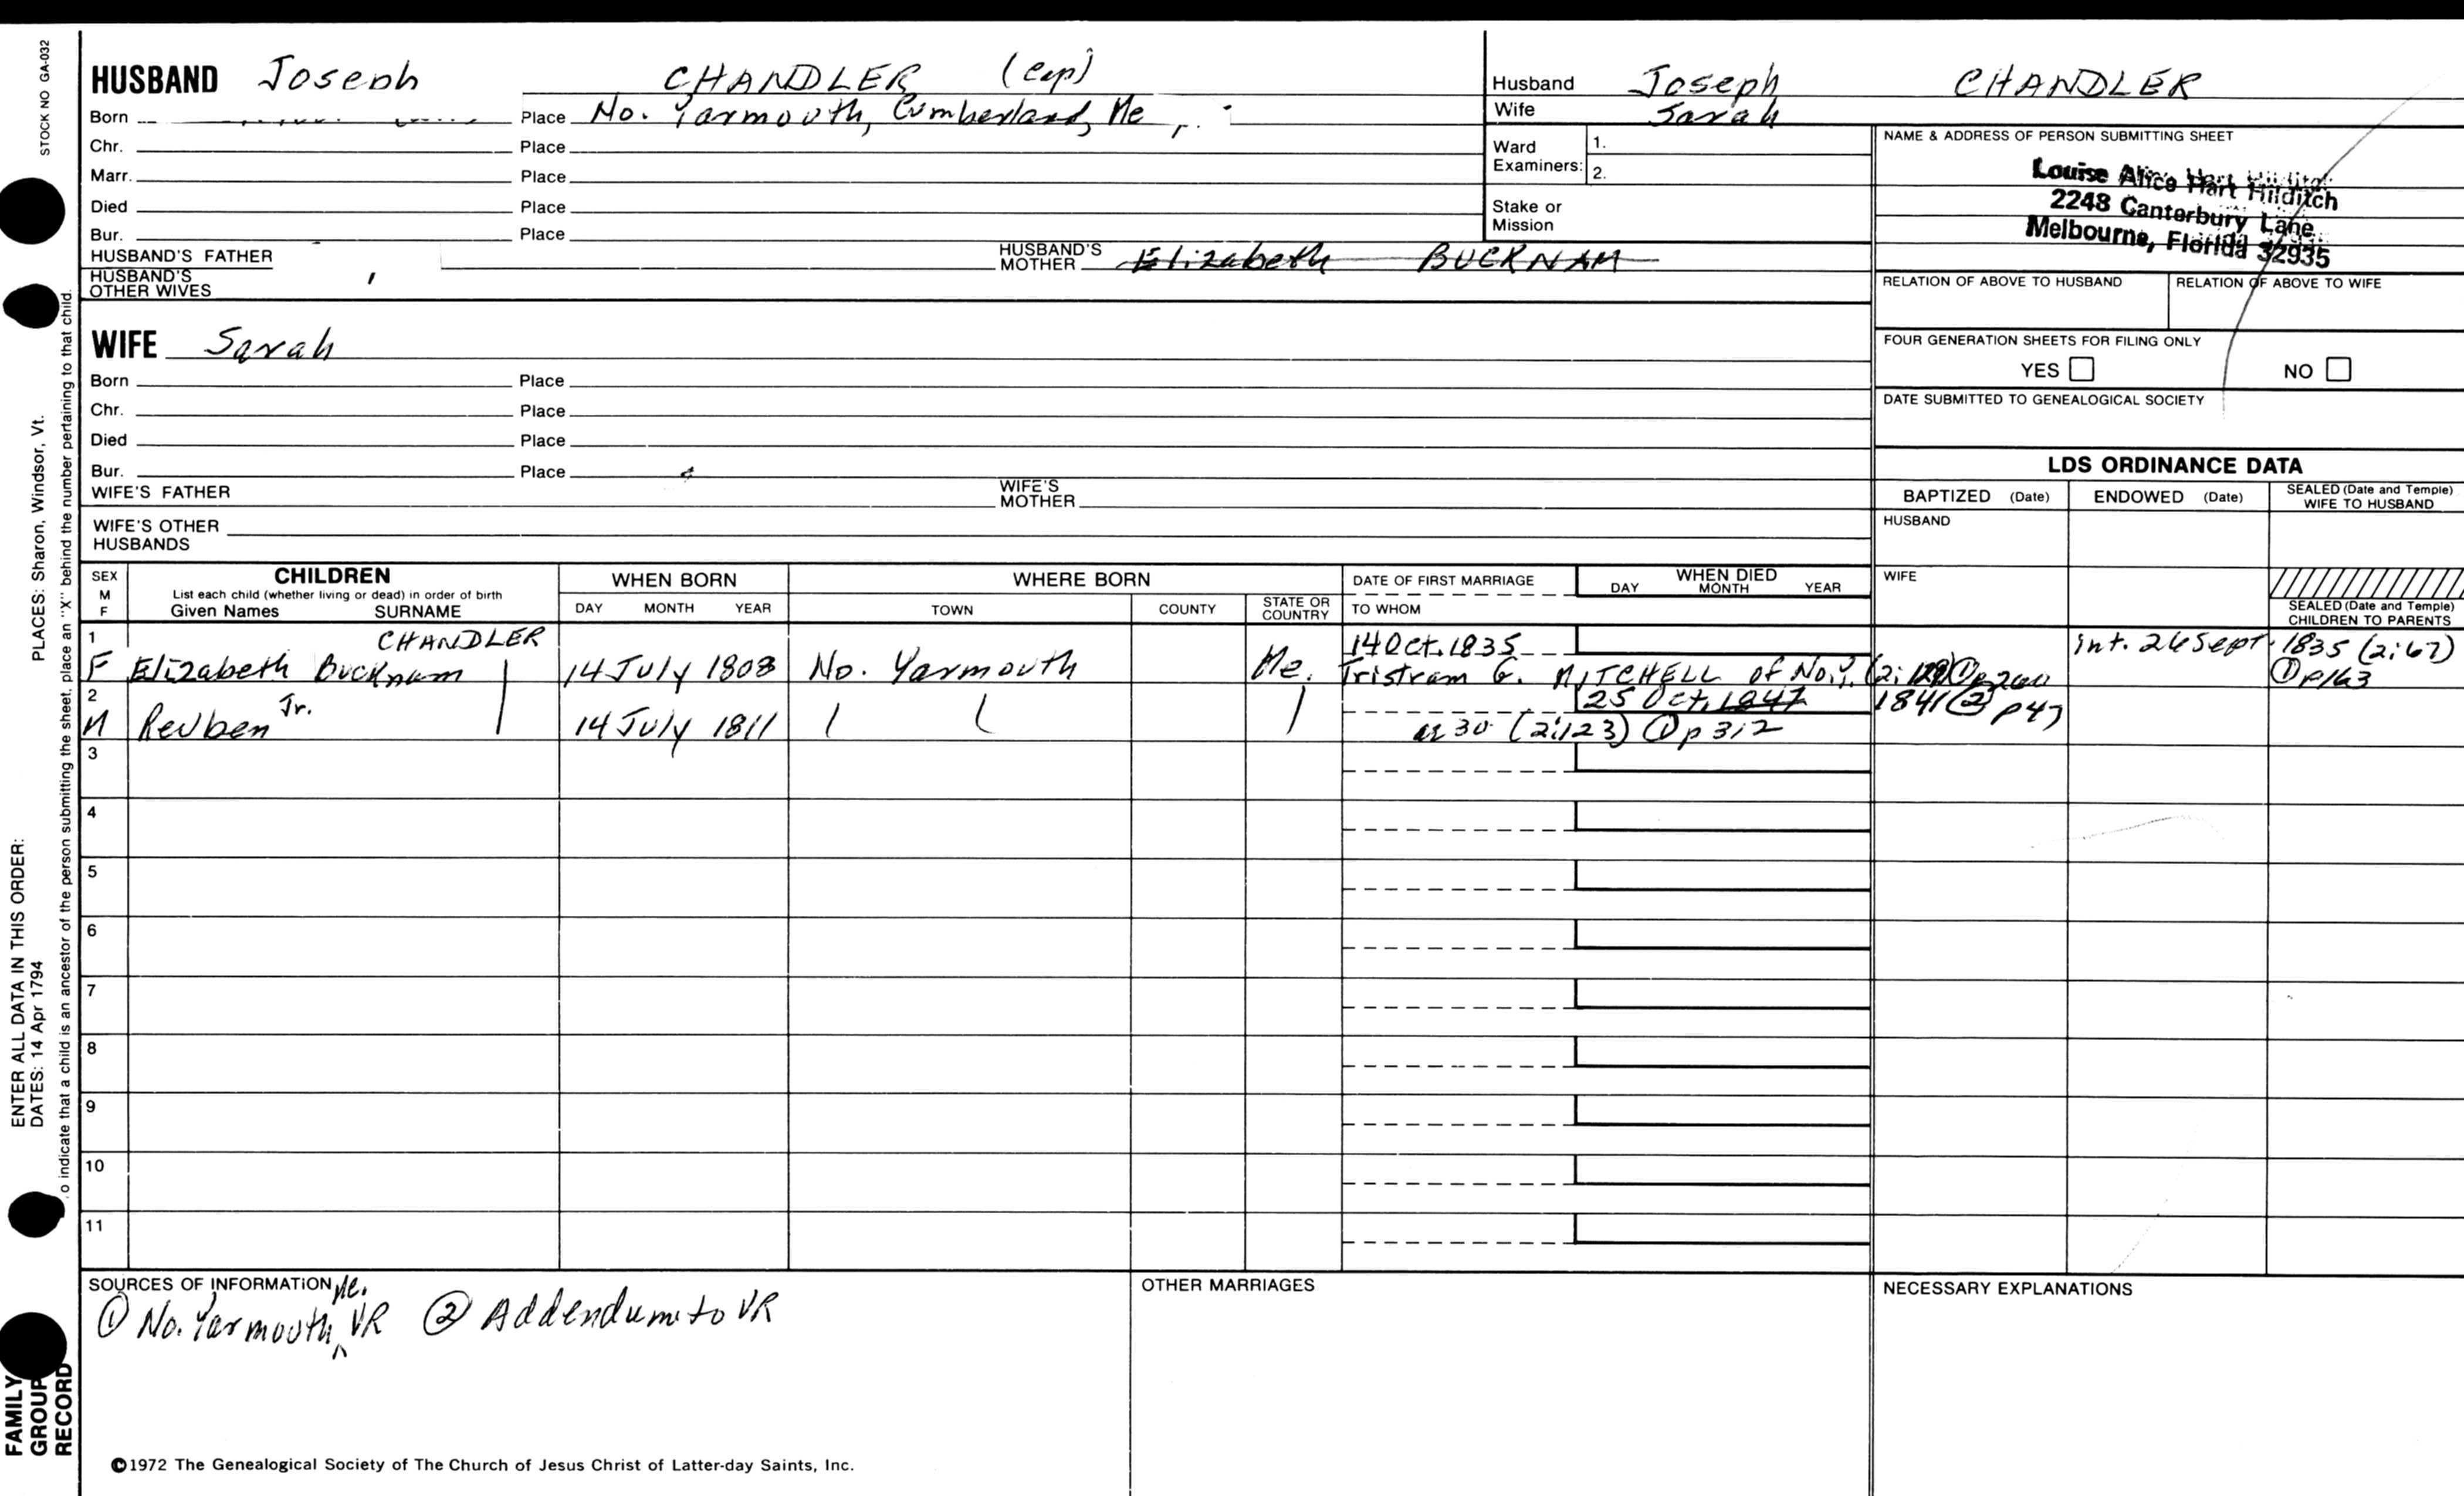 STOCK NO GA-032
HUSBAND Joseph CHANDLER (Cap)
Born Place No. Yarmouth, Cumberland, Me
Chr. Place
Marr. Place
Died Place
Bur. Place
HUSBAND'S FATHER HUSBAND'S MOTHER Elizabeth BUCKNAM
HUSBAND'S OTHER WIVES
Husband Joseph CHANDLER
Wife Sarah
Ward Examiners: 1.
2.
Stake or Mission
NAME & ADDRESS OF PERSON SUBMITTING SHEET
Louise Alice Hart Hilditch
2248 Canterbury Lane
Melbourne, Florida 32935
RELATION OF ABOVE TO HUSBAND RELATION OF ABOVE TO WIFE
FOUR GENERATION SHEETS FOR FILING ONLY
YES NO
DATE SUBMITTED TO GENEALOGICAL SOCIETY
WIFE Sarah
Born Place
Chr. Place
Died Place
Bur. Place
WIFE'S FATHER WIFE'S MOTHER
WIFE'S OTHER HUSBANDS
LDS ORDINANCE DATA
BAPTIZED (Date) ENDOWED (Date) SEALED (Date and Temple) WIFE TO HUSBAND
HUSBAND
WIFE
SEALED (Date and Temple) CHILDREN TO PARENTS
SEX M F
CHILDREN
List each child (whether living or dead) in order of birth
Given Names SURNAME
WHEN BORN
DAY MONTH YEAR
WHERE BORN
TOWN COUNTY STATE OR COUNTRY
DATE OF FIRST MARRIAGE
TO WHOM
WHEN DIED
DAY MONTH YEAR
1 CHANDLER 14 Oct. 1835 int. 26 Sept. 1835 (2:67)
F Elizabeth Bucknam 14 July 1808 No. Yarmouth Me. Tristram G. MITCHELL of No. Y. ① p163
2 Jr. 25 Oct. 1847 1841 ② p47
M Reuben 14 July 1811 ae 30 (2:123) ① p 312
3
4
5
6
7
8
9
10
11
SOURCES OF INFORMATION
① No. Yarmouth, Me. VR ② Addendum to VR
OTHER MARRIAGES
NECESSARY EXPLANATIONS
©1972 The Genealogical Society of The Church of Jesus Christ of Latter-day Saints, Inc.
PLACES: Sharon, Windsor, Vt.
ENTER ALL DATA IN THIS ORDER:
DATES: 14 Apr 1794
o indicate that a child is an ancestor of the person submitting the sheet, place an "X" behind the number pertaining to that child.
FAMILY
GROUP
RECORD